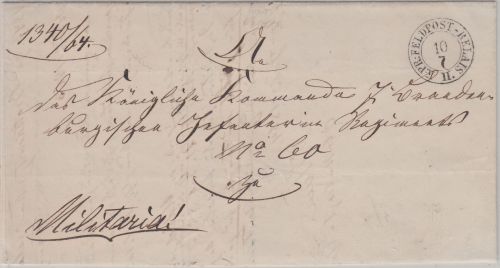 1340/64.
K.PR.FELDPOST-RELAIS II.
10
7
An
das Königliche Kommando 7 Branden-
burgischen Infanterie Regiments
No 60
zu
Militaria!